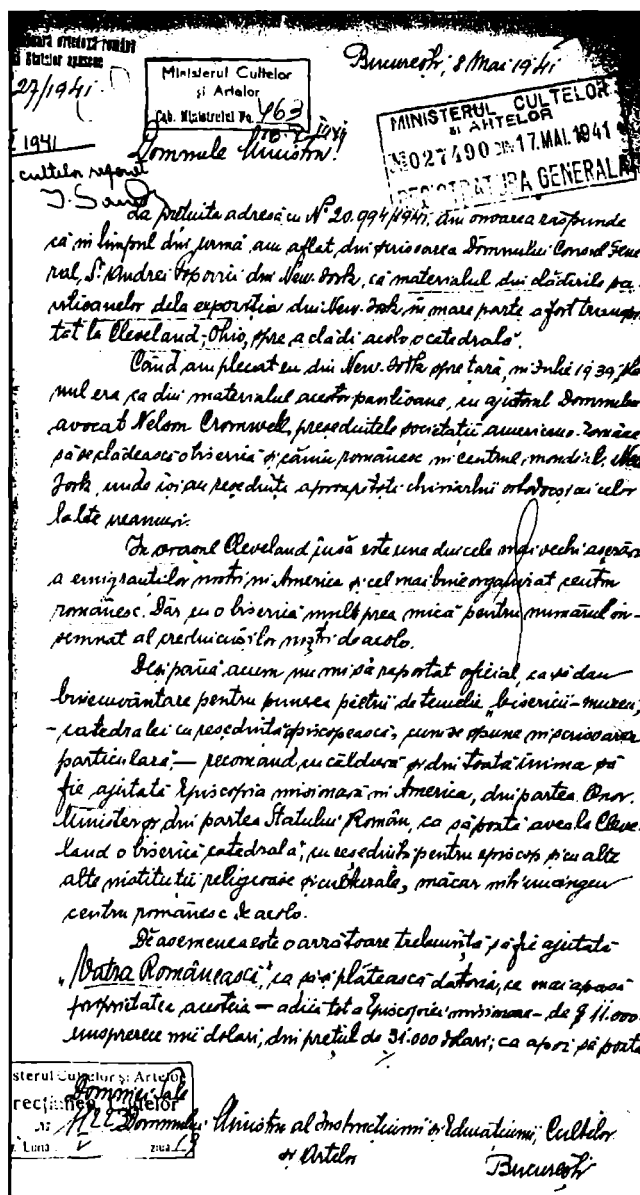 27/1941
București, 8 Mai 1941
Ministerul Cultelor
și Artelor
Cab. Ministrului No. 463
MINISTERUL CULTELOR
și ARTELOR
No 027490 DIN 17.MAI.1941
REGISTRATURA GENERALA
1941
Domnule Ministru!
cultelor referat
La prețuita adresă cu No 20.994/1941. am onoarea a răspunde
că în timpul din urmă am aflat, din scrisoarea Domnului Consul Gene-
ral, St. Andrei Popovici din New-York, că materialul din clădirile pa-
vilioanelor dela expoziția din New-York, în mare parte a fost transpor-
tat la Cleveland-Ohio, spre a clădi acolo o catedrală.
Când am plecat eu din New-York spre țară, în Iulie 1939, pla-
nul era, ca din materialul acestor pavilioane, cu ajutorul Domnului
avocat Nelson Cromwell, președintele societății americano-române
să se clădească o biserică și cămin românesc în centrul mondial, New
York, unde își au reședința aproape toți chiriarhii ortodocși ai celor-
lalte neamuri.
In orașul Cleveland însă este una din cele mai vechi așezări
a emigranților noștri în America și cel mai bine organizat centru
românesc. Dar cu o biserică mult prea mică pentru numărul în-
semnat al credincioșilor noștri de acolo.
Deși până acum nu mi s'a raportat oficial, ca să dau
binecuvântare pentru punerea pietrii de temelie „bisericii-muzeu,
- catedralei cu reședință episcopească, cum se spune în scrisoarea
particulară, — recomand cu căldură și din toată inima să
fie ajutată Episcopia misionară în America, din partea Onor.
Minister și din partea Statului Român, ca să poată avea la Cleve-
land o biserică catedrală, cu reședință pentru episcop și cu alte
alte instituții religioase și culturale, măcar într'un
centru românesc de acolo.
De asemenea este o arzătoare trebuință, să fie ajutată
„Vatra Românească", ca să-și plătească datoria, ce mai apasă
proprietatea acesteia — adică tot a Episcopiei misionare — de $ 11.000
unsprezece mii dolari, din prețul de 31.000 dolari; ca apoi să poată
./.
Ministerul Cultelor și Artelor
Direcțiunea Cultelor
Luna V ziua 19
Domniei Sale
Domnului Ministru al Instrucțiunii și Educațiunii, Cultelor
și Artelor
București